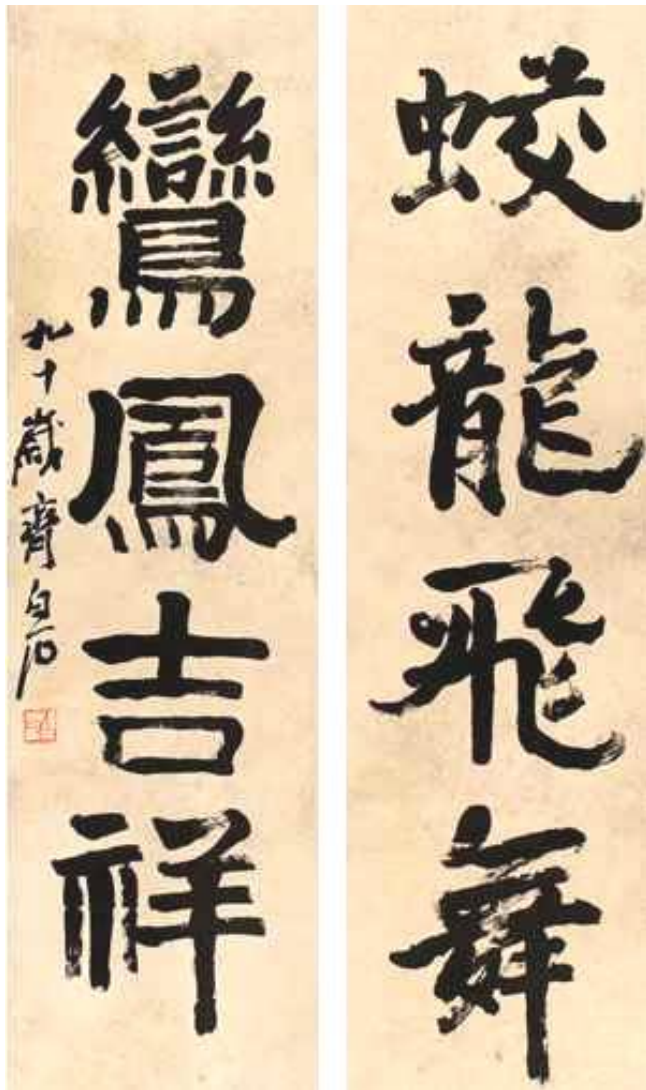 蛟龍飛舞
鸞鳳吉祥
九十歲齊白石